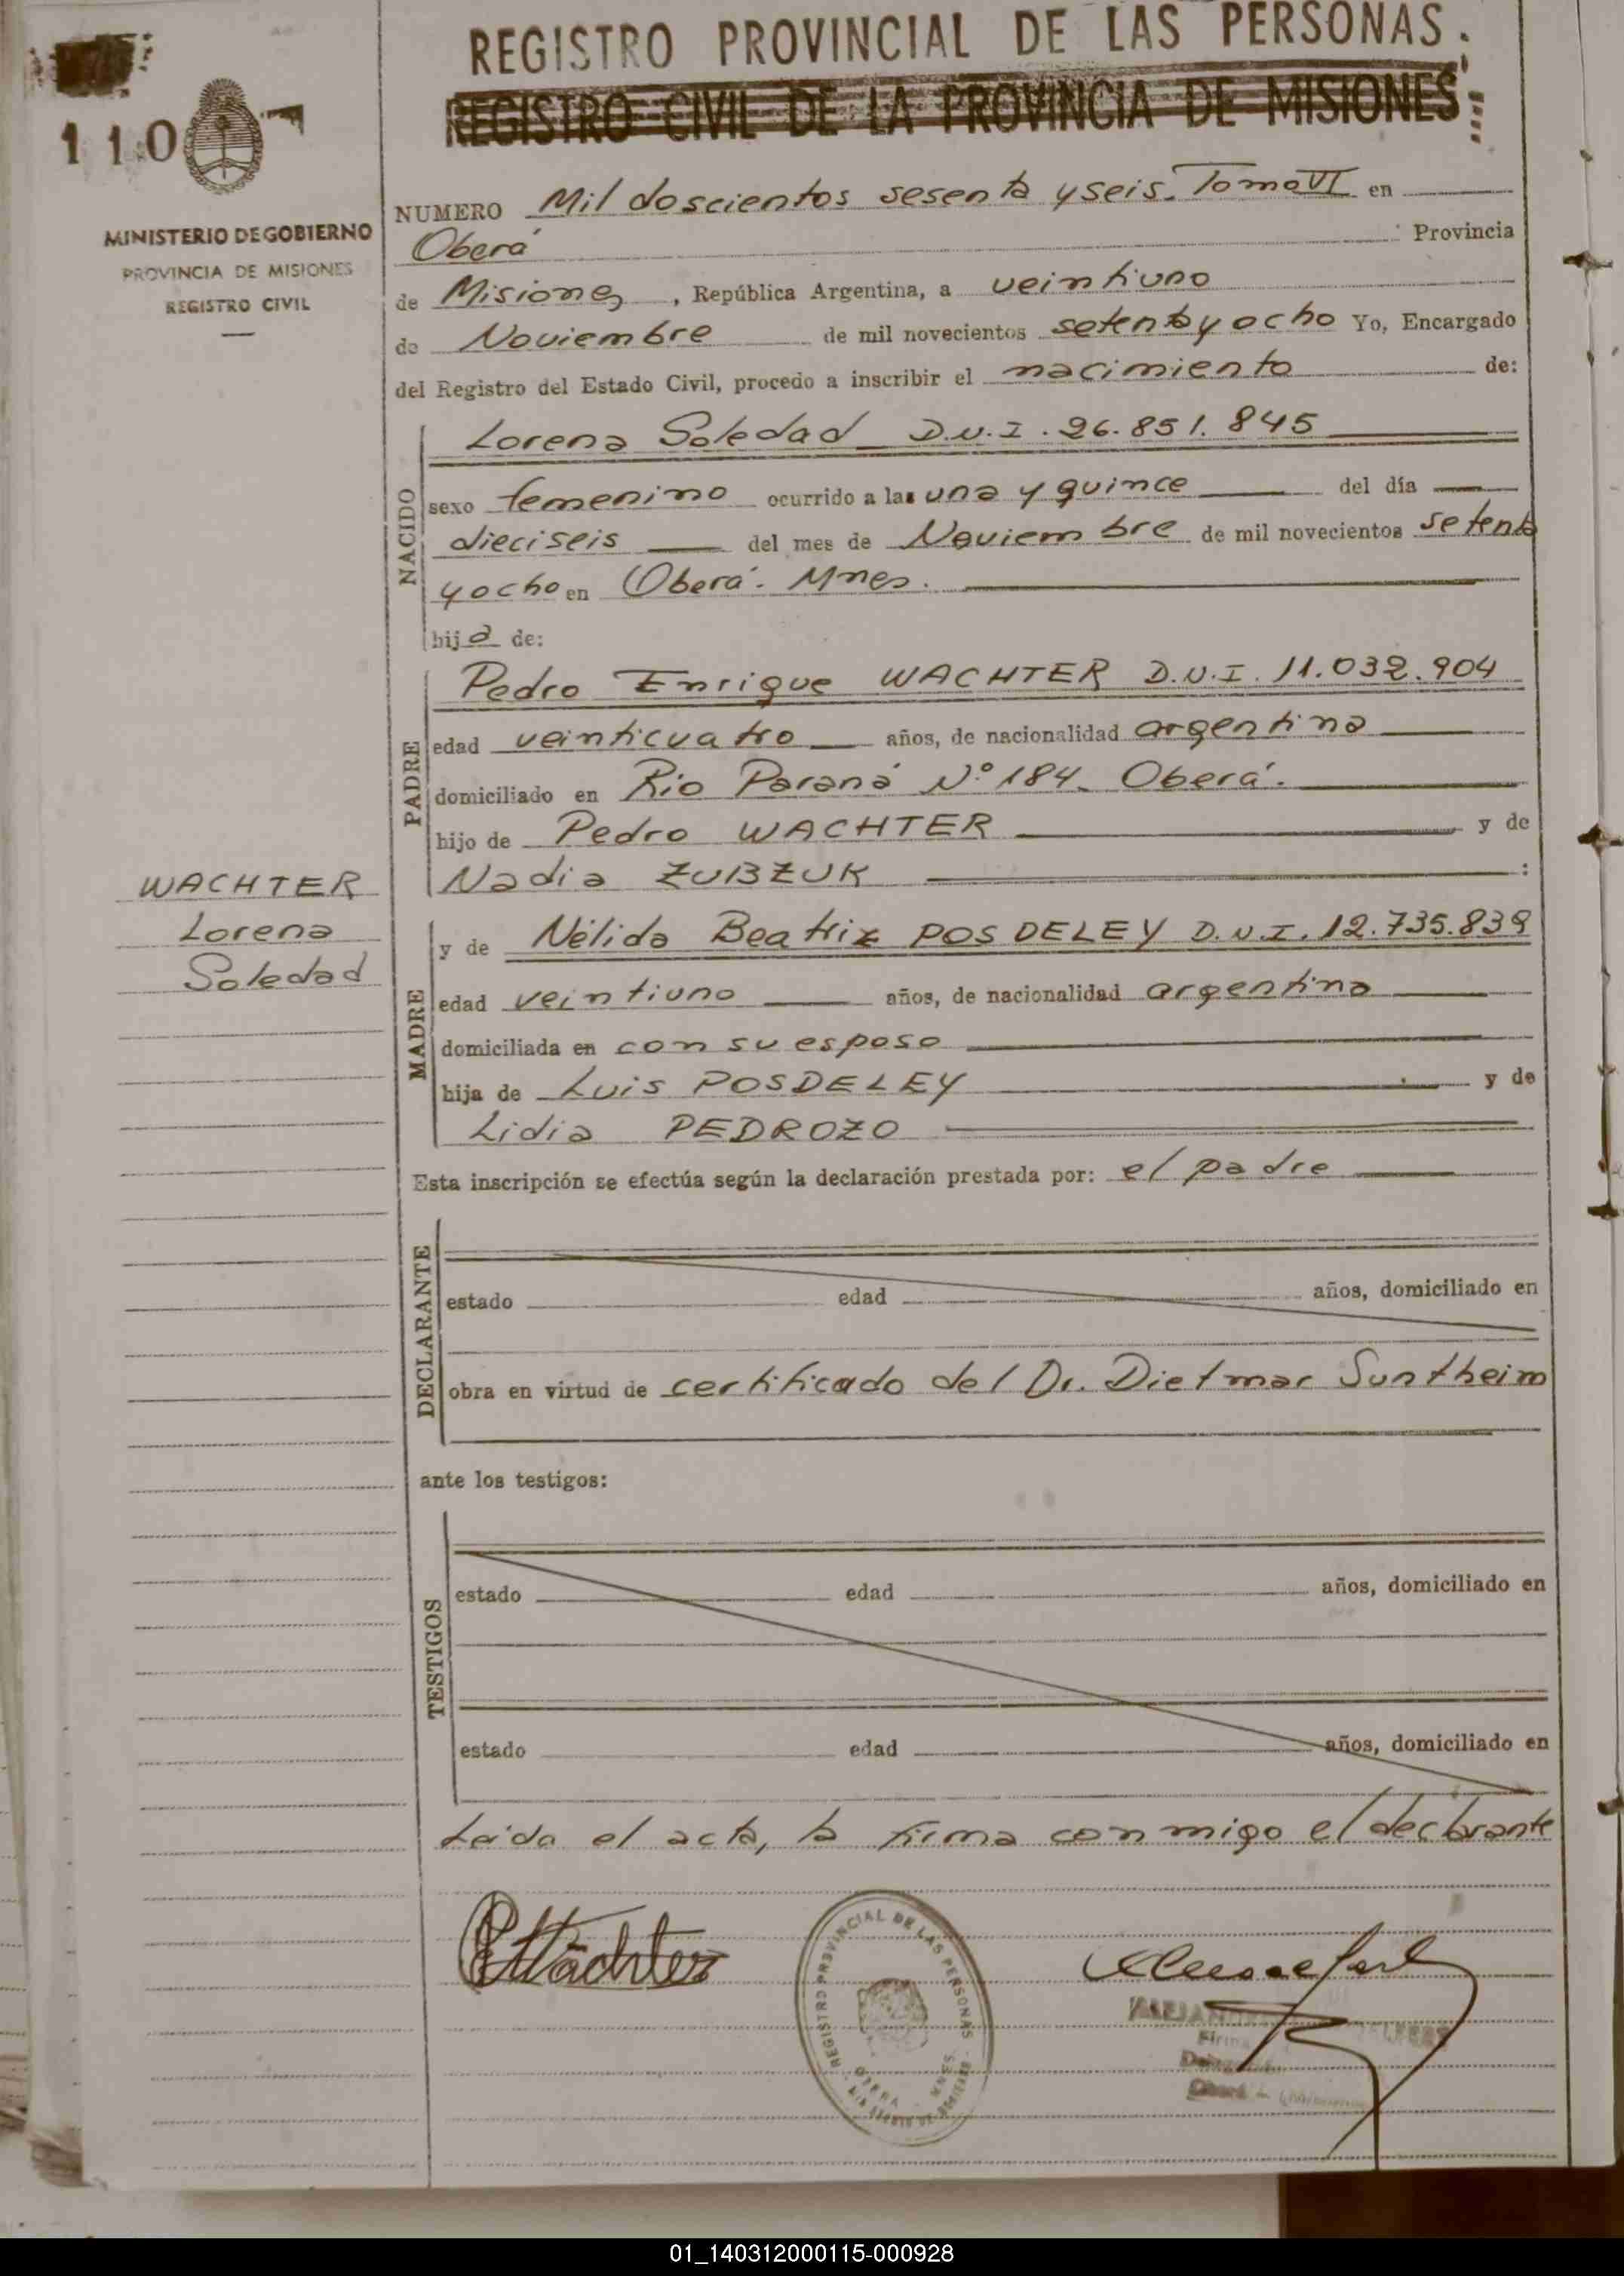 REGISTRO PROVINCIAL DE LAS PERSONAS.
REGISTRO CIVIL DE LA PROVINCIA DE MISIONES
110
MINISTERIO DE GOBIERNO
PROVINCIA DE MISIONES
REGISTRO CIVIL
NUMERO Mil doscientos sesenta y seis. Tomo VI en
Oberá Provincia
de Misiones, República Argentina, a veintiuno
de Noviembre de mil novecientos setenta y ocho Yo, Encargado
del Registro del Estado Civil, procedo a inscribir el nacimiento de:
NACIDO
Lorena Soledad D.N.I. 26.851.845
sexo femenino ocurrido a las una y quince del día
dieciseis del mes de Noviembre de mil novecientos setenta
y ocho en Oberá. Mnes.
hija de:
PADRE
Pedro Enrique WACHTER D.N.I. 11.032.904
edad veinticuatro años, de nacionalidad argentina
domiciliado en Rio Paraná Nº 184. Oberá.
hijo de Pedro WACHTER y de
Nadia ZUBZUK :
WACHTER
Lorena
Soledad
MADRE
y de Nélida Beatriz POSDELEY D.N.I. 12.735.839
edad veintiuno años, de nacionalidad argentina
domiciliada en con su esposo
hija de Luis POSDELEY y de
Lidia PEDROZO
Esta inscripción se efectúa según la declaración prestada por: el padre
DECLARANTE
estado edad años, domiciliado en
obra en virtud de certificado del Dr. Dietmar Suntheim
ante los testigos:
TESTIGOS
estado edad años, domiciliado en
estado edad años, domiciliado en
Leída el acta, la firma conmigo el declarante
PEWächter
REGISTRO PROVINCIAL DE LAS PERSONAS
OBERA - MNES.
Oberá
01_140312000115-000928